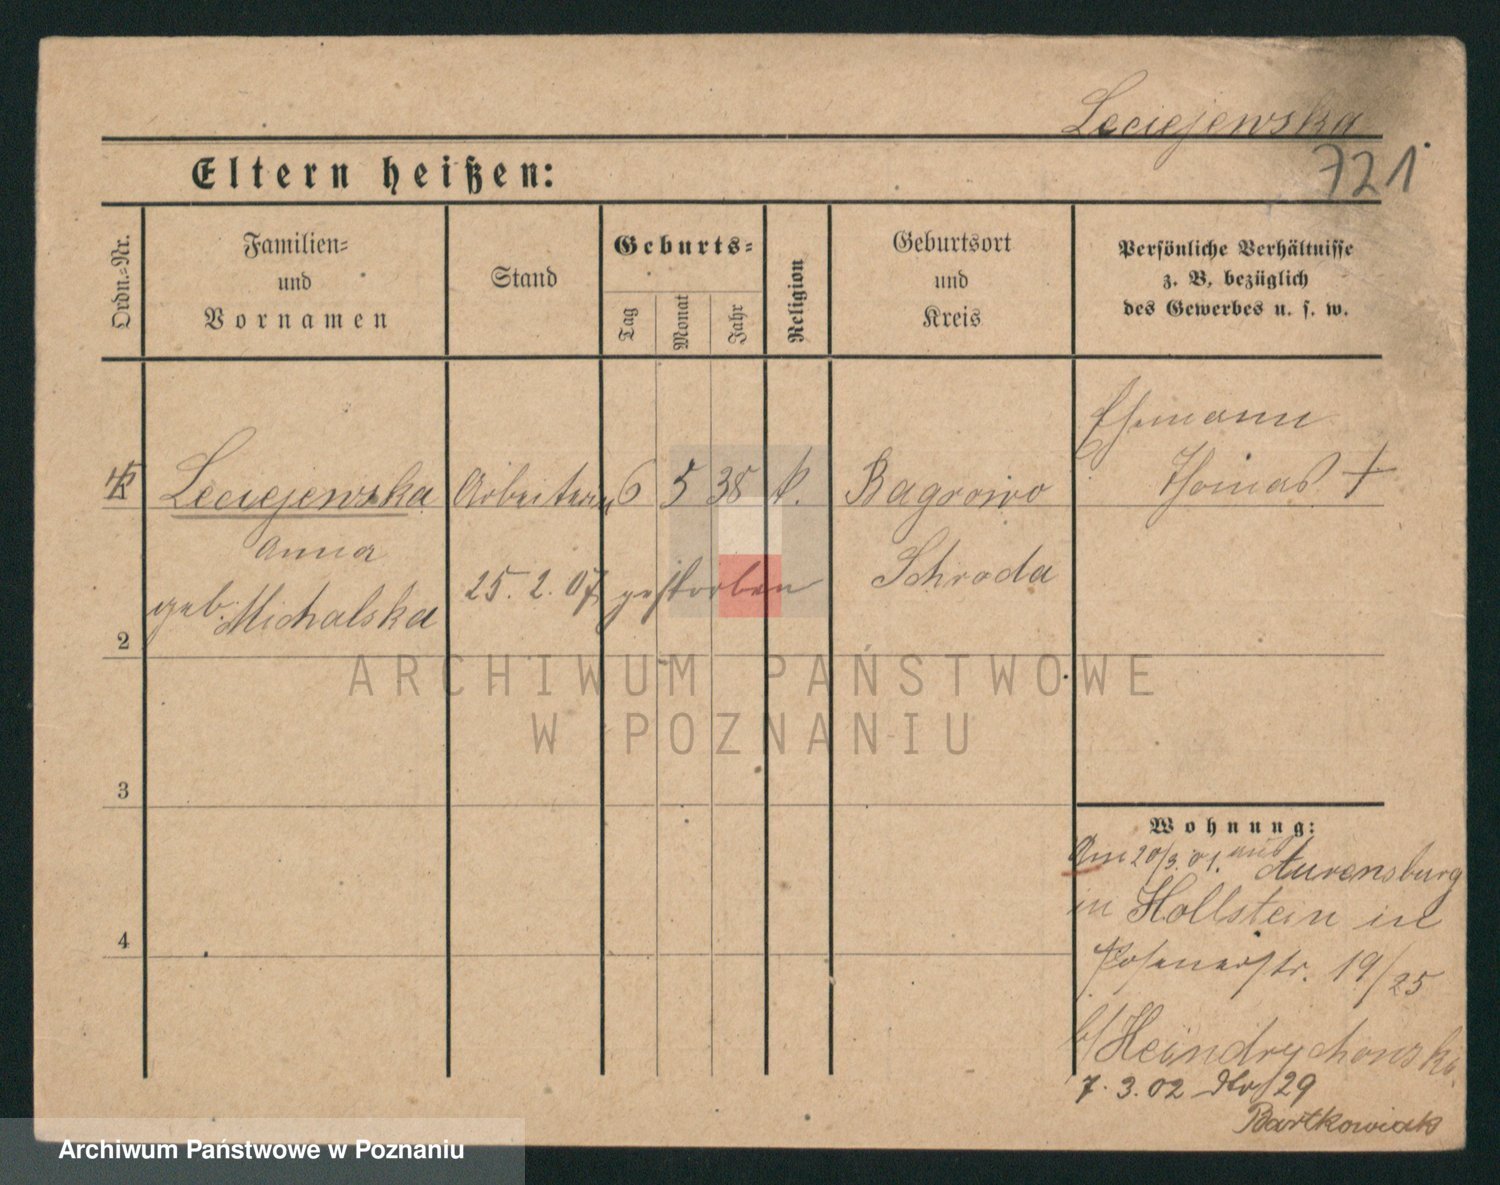 Leciejewska
721
Eltern heißen:
Ordn.-Nr.
Familien-
und
Vornamen
Stand
Geburts-
Tag
Monat
Jahr
Religion
Geburtsort
und
Kreis
Persönliche Verhältnisse
z. B. bezüglich
des Gewerbes u. s. w.
Ehemann
Thomas †
Leciejewska Arbeiterin 6 5 38 k. Bagrowo
Anna
Schroda
geb. Michalska
25. 2. 07 gestorben
2
ARCHIWUM PAŃSTWOWE
W POZNANIU
3
Wohnung:
Am 20/3. 01. aus
in Hollstein in
4
Posenerstr. 19/25
b/
7. 3. 02 29
Bartkowiak
Archiwum Państwowe w Poznaniu